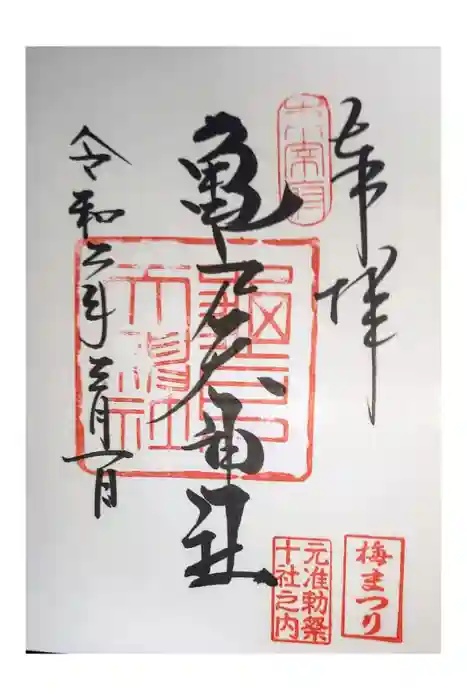 奉拝
亀戸天神社
令和二年三月一日
元准勅祭
十社之内
梅まつり